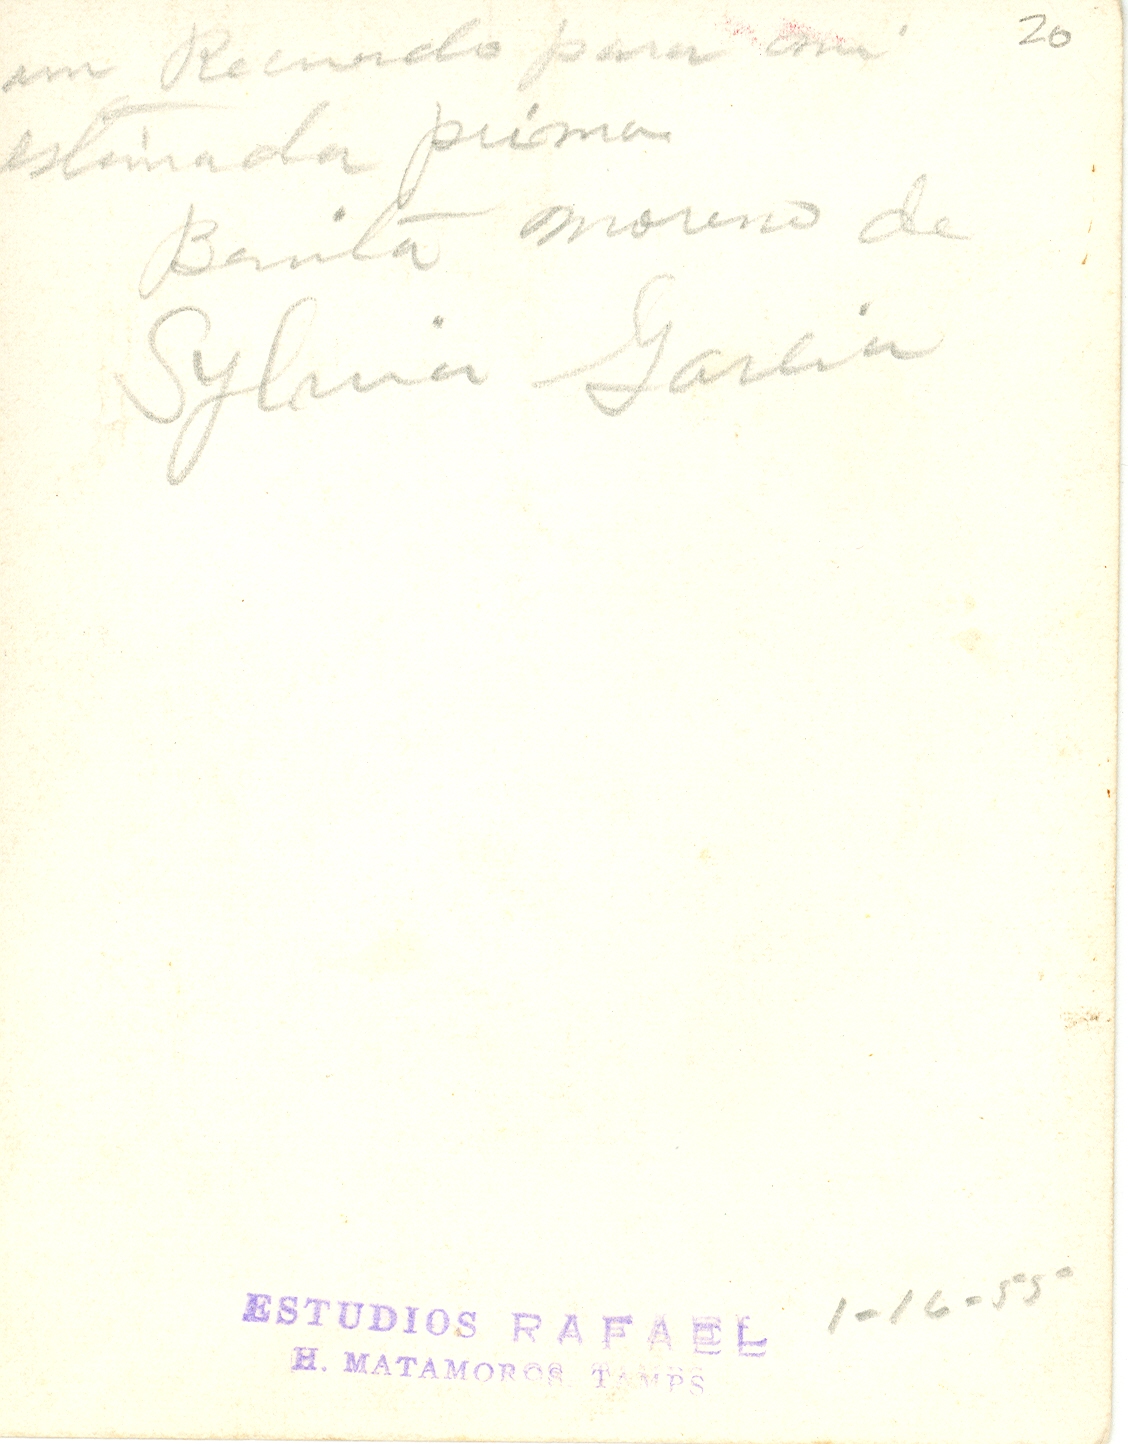 20
un Recuerdo para mi
estimada prima
Benita moreno de
Sylvia Garcia
1-16-55
ESTUDIOS RAFAEL
H. MATAMOROS. TAMPS